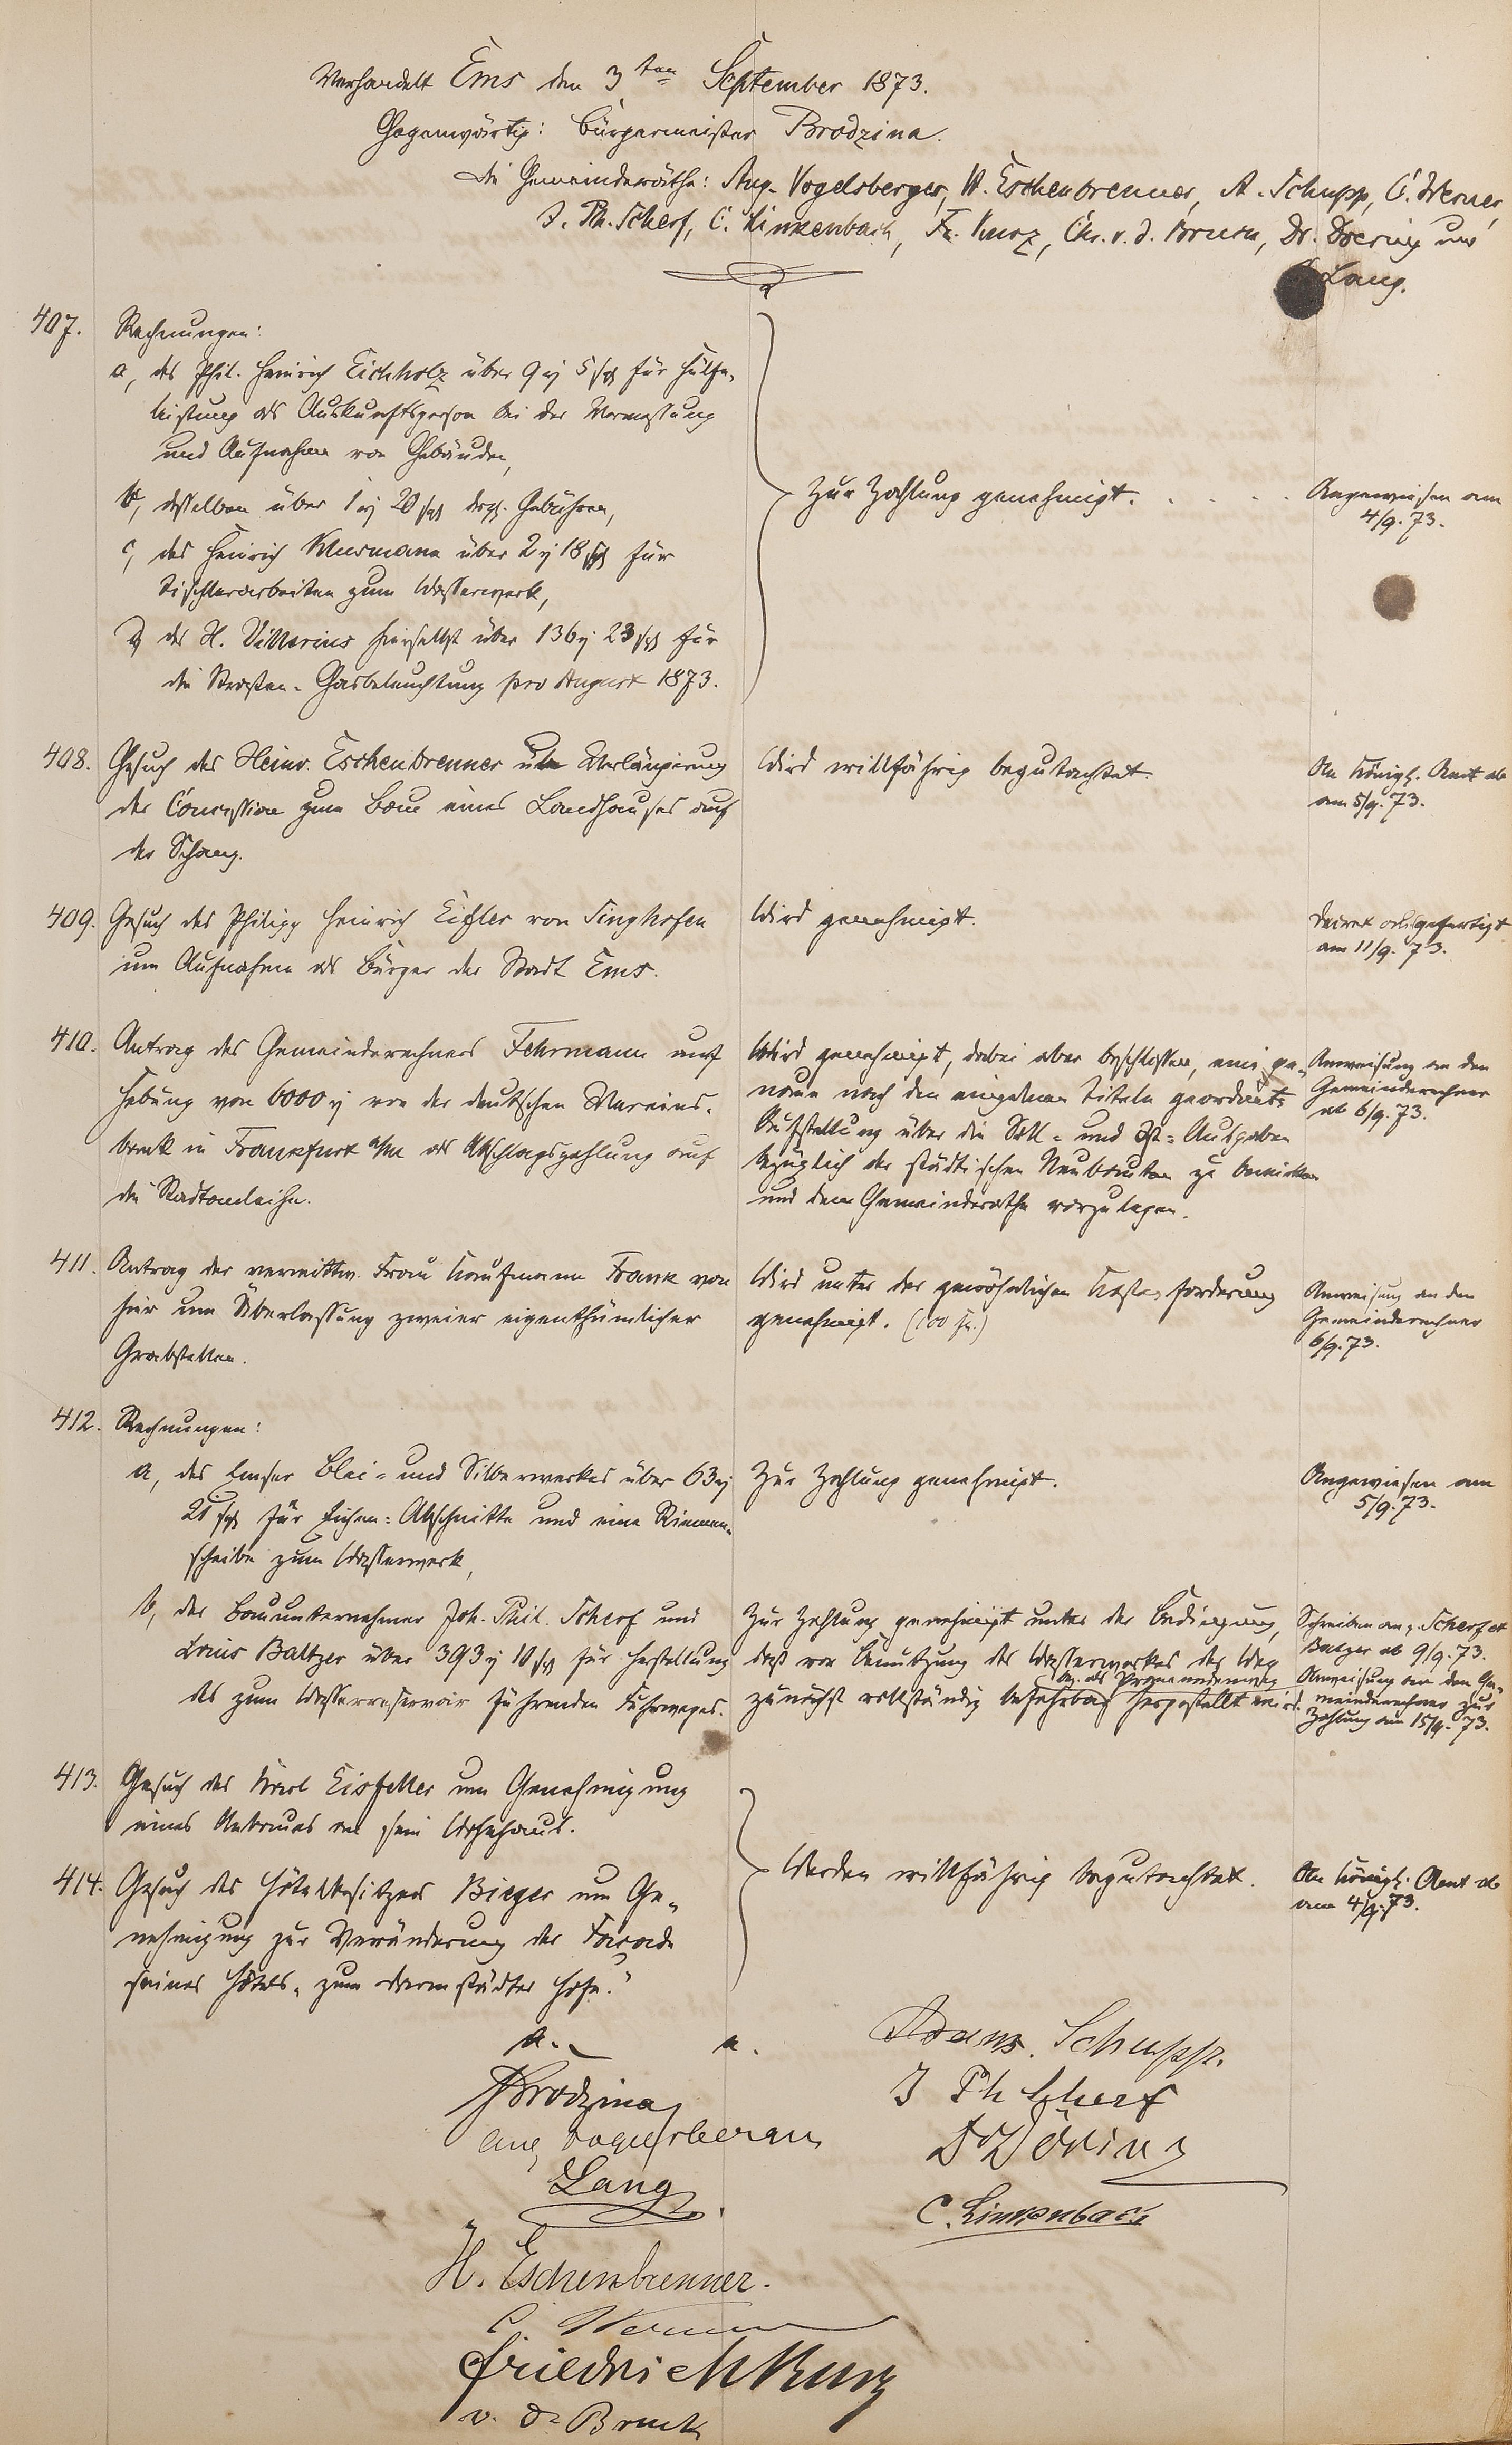 Verhandelt Ems den 3ten September 1873.
Gegenwärtig: Bürgermeister Brodzina.
die Gemeinderäthe: Aug. Vogelsberger, H. Eschenbrenner, A. Schupp, C. Werner,
J. Ph. Scherf, C. Linkenbach, Fr. Kurz, Chr. v. d. Bruck, Dr. Doering und
Lang.
407. Rechnungen:
a, des Phil. Heinrich Eichholz über 9 5 für Hülfe-
leistung als Auskunftsperson bei der Vermessung
und Aufnahme von Gebäuden,
b, desselben über 1 20 desgl. Gebühren,
c, des Heinrich über 2 18 für
Tischlerarbeiten zum Wasserwerk,
d, des H. Vittorius hierselbst über 136 23 für
die Straßen-Gasbeleuchtung pro August 1873.
Zur Zahlung genehmigt.
Angewiesen am
4/9. 73.
408. Gesuch des Heinr. Eschenbrenner um Verlängerung
der Concession zum Bau eines Landhauses auf
der Schanz.
Wird willfährig begutachtet.
An Königl. Amt ab
am 5/9. 73.
409. Gesuch des Philipp Heinrich Eichler von Singhofen
um Aufnahme als Bürger der Stadt Ems.
Wird genehmigt.
Decret ausgefertigt
am 11/9. 73.
410. Antrag des Gemeinderechners Fehrmann auf
Hebung von 6000 von der deutschen Vereins-
bank in Frankfurt a/M als Abschlagszahlung auf
die Stadtanleihe.
Wird genehmigt, dabei aber beschlossen, eine ge-
naue nach den einzelnen Titeln geordnete
Aufstellung über die Soll- und Ist-Ausgaben
bezüglich der städtischen Neubauten zu bewirken
und dem Gemeinderathe vorzulegen.
Anweisung an den
Gemeinderechner
ab 6/9. 73.
411. Antrag der verwittw. Frau Kaufmann Frank von
hier um Überlassung zweier eigenthümlicher
Grabstellen.
Wird unter der gewöhnlichen Kostenforderung
genehmigt. (100 fr.)
Anweisung an den
Gemeinderechner
6/9. 73.
412. Rechnungen:
a, des Emser Blei- und Silberwerkes über 63
20 für Eichen-Abschnitte und eine Riemen-
scheibe zum Wasserwerk,
Zur Zahlung genehmigt.
Angewiesen am
5/9. 73.
b, der Bauunternehmer Joh. Phil. Scherf und
Louis Baltzer über 393 10 für Herstellung
des zum Wasserreservoir führenden Fuhrweges.
Zur Zahlung genehmigt unter der Bedingung,
daß vor Benutzung des Wasserwerkes der Weg
bez. als Promenadenweg
zunächst vollständig befahrbar hergestellt wird.
Schreiben an Scherf et
Balzer ab 9/9. 73.
Anweisung an den Ge-
meinderechner zur
Zahlung am 15/9. 73.
413. Gesuch des Karl Eisfeller um Genehmigung
eines Anbaues an sein Wohnhaus.
414. Gesuch des Hôtelbesitzers Bieger um Ge-
nehmigung zur Veränderung der Facade
seines Hôtels „zum darmstädter Hofe."
Werden willfährig begutachtet.
An Königl. Amt ab
am 4/9. 73.
Brodzina
Aug Vogelsberger
Lang
H. Eschenbrenner.
C. Werner
Friedrich Kurz
v. d. Bruck
Adam Schupp.
J Ph Scherf
Dr Döring
C. Linkenbach